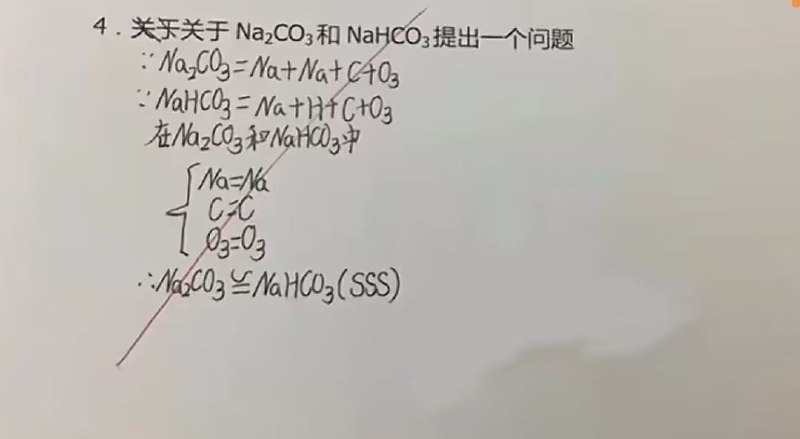 4．关于关于 Na₂CO₃和 NaHCO₃提出一个问题
∵Na₂CO₃=Na+Na+C+O₃
∵NaHCO₃=Na+H+C+O₃
在Na₂CO₃和NaHCO₃中
Na=Na
C=C
O₃=O₃
∴Na₂CO₃≌NaHCO₃(SSS)